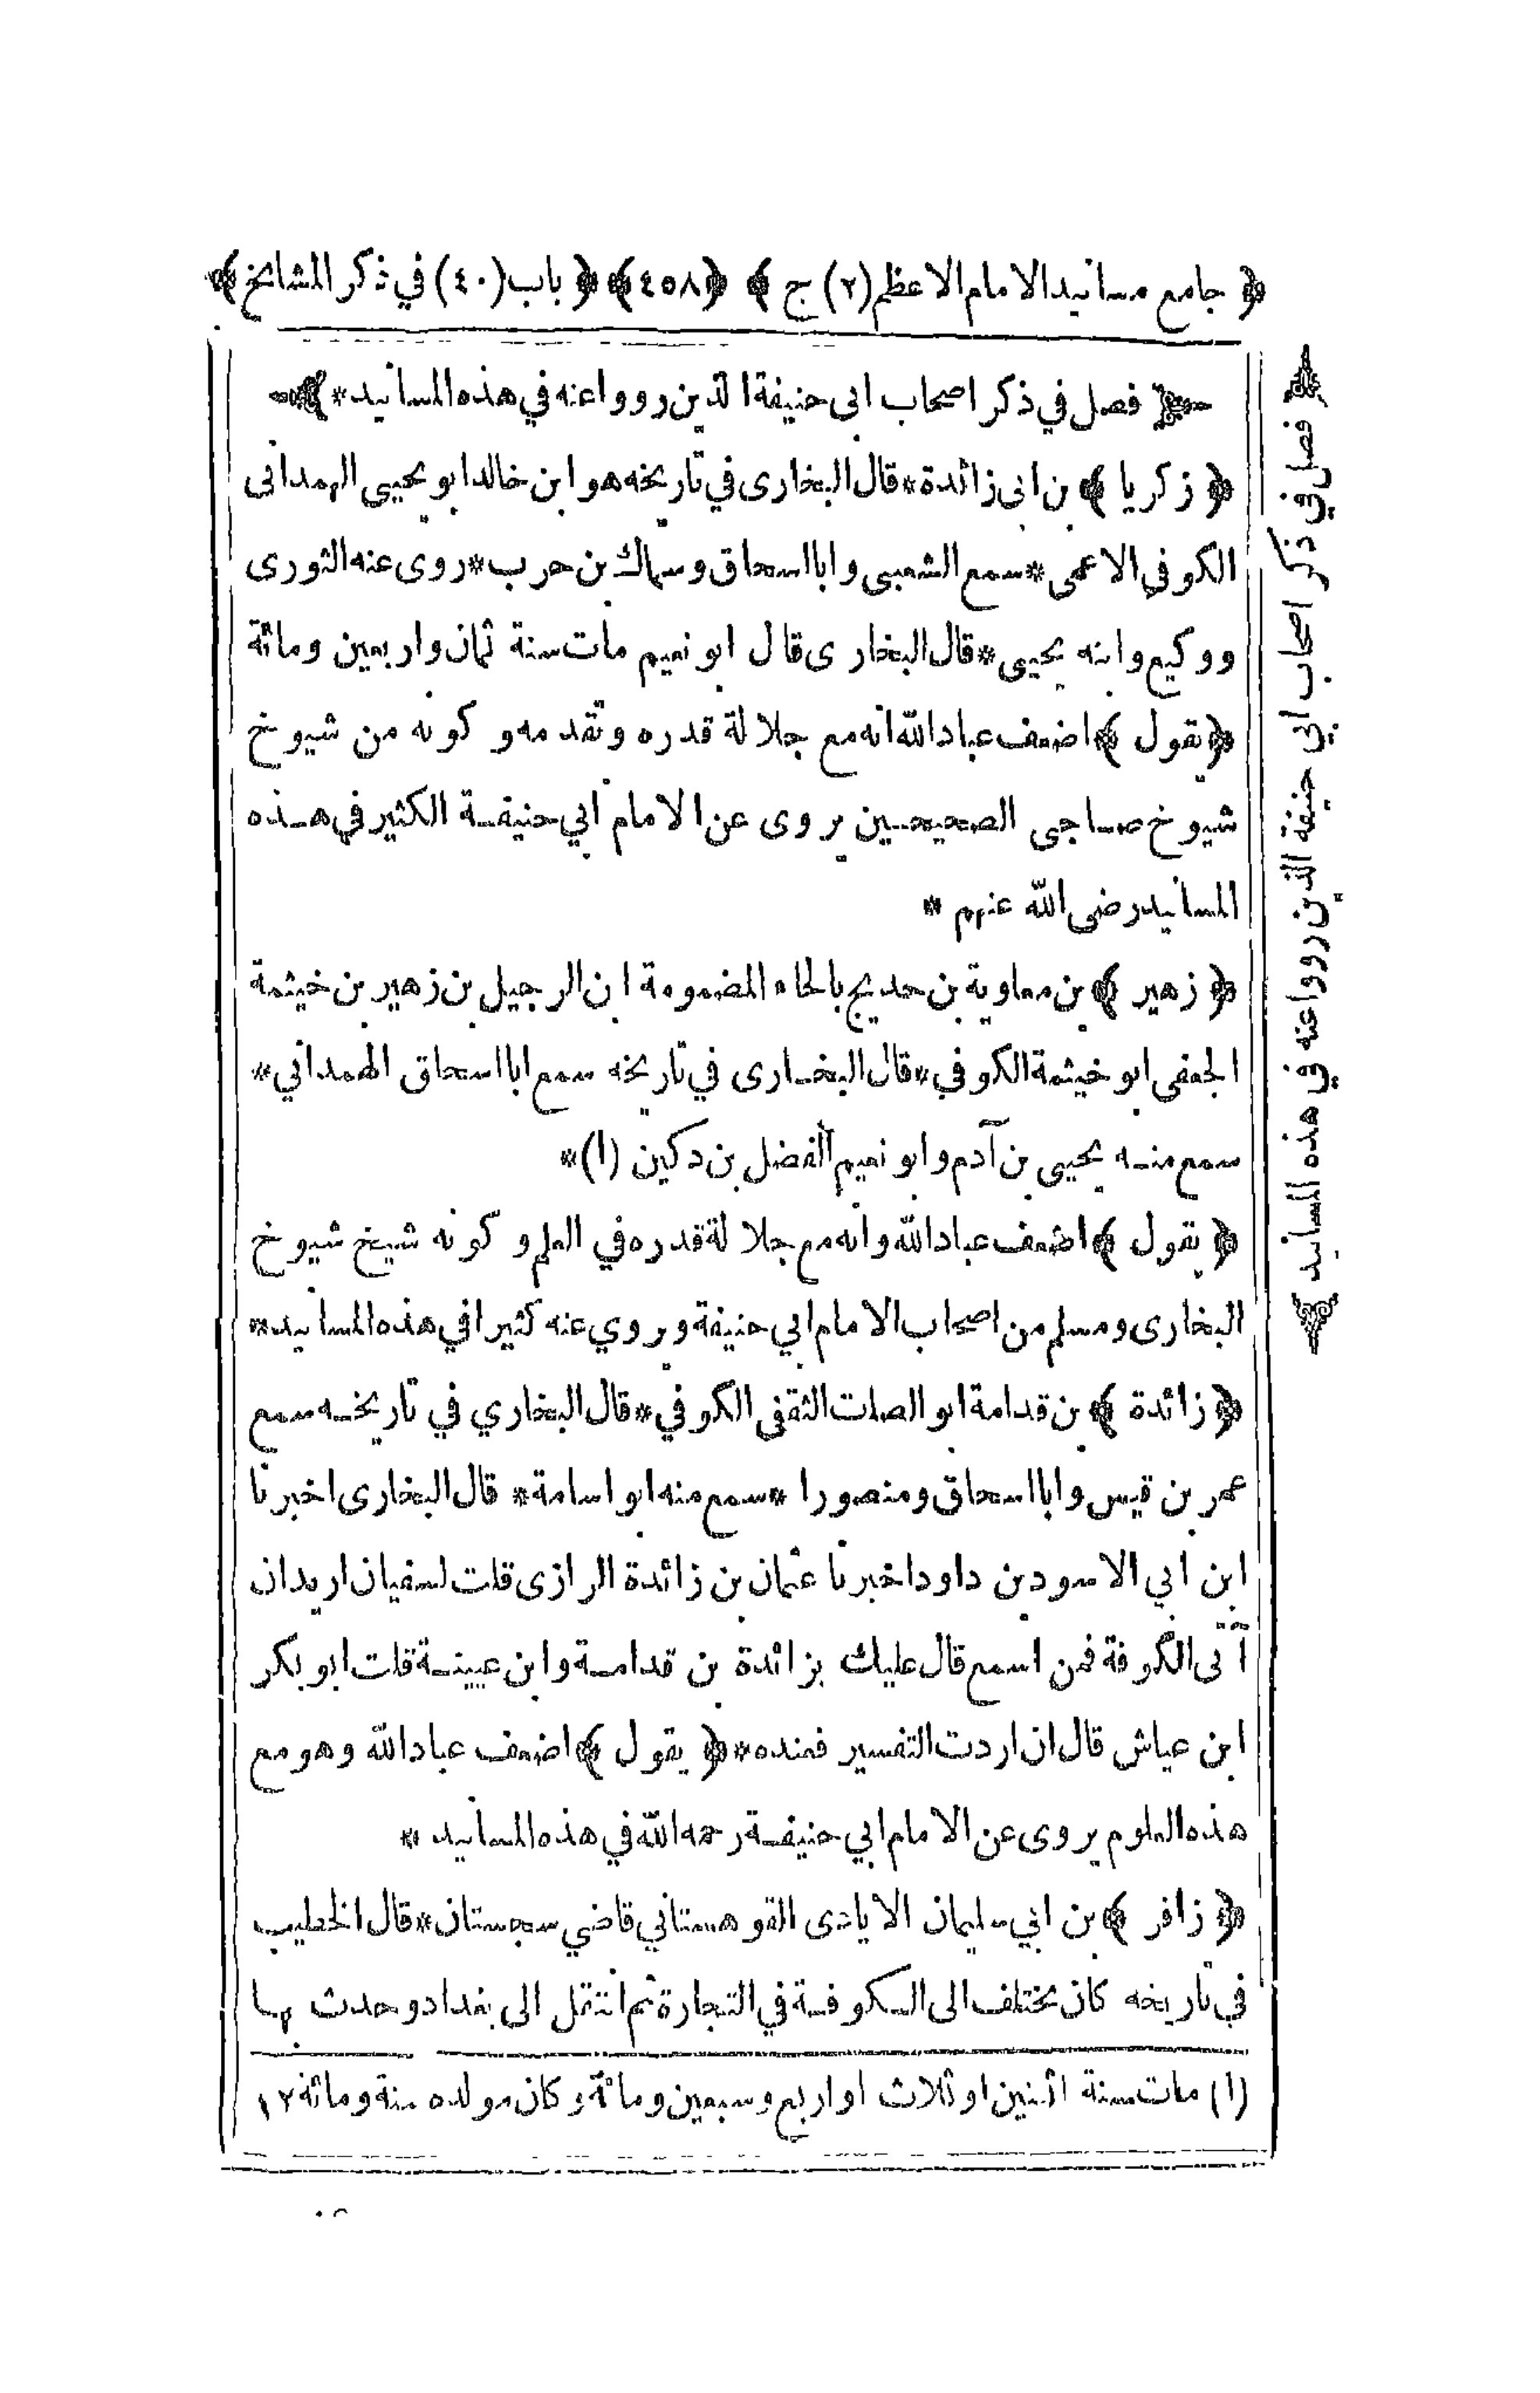 ﴿ جامع مسانيد الامام الاعظم (٢) ج ﴾ ﴿٤٥٨﴾ ﴿ باب (٤٠) في ذكر المشايخ ﴾
﴿ فصل في ذكر اصحاب ابى حنيفة الذين رووا عنه في هذه المسانيد * ﴾
﴿ زكريا ﴾ بن ابى زائدة * قال البخارى في تاريخه هو ابن خالد ابو يحيى الهمدانى
الكوفي الاعمى * سمع الشعبى وابا اسحاق وسماك بن حرب * روى عنه الثورى
ووكيع وابنه يحيى * قال البخارى قال ابو نعيم مات سنة ثمان واربعين ومائة
﴿ يقول ﴾ اضعف عباد الله انه مع جلالة قدره وتقدمه وكونه من شيوخ
شيوخ صاحبى الصحيحين يروى عن الامام ابي حنيفة الكثير في هذه
المسانيد رضى الله عنهم *
﴿ زهير ﴾ بن معاوية بن حديج بالحاء المضمومة ابن الرجيل بن زهير بن خيثمة
الجعفى ابو خيثمة الكوفي * قال البخارى في تاريخه سمع ابا اسحاق الهمداني *
سمع منه يحيى بن آدم وابو نعيم الفضل بن دكين (١) *
﴿ يقول ﴾ اضعف عباد الله وانه مع جلالة قدره في العلم وكونه شيخ شيوخ
البخارى ومسلم من اصحاب الامام ابي حنيفة ويروي عنه كثيرا في هذه المسانيد *
﴿ زائدة ﴾ بن قدامة ابو الصلت الثقفى الكوفي * قال البخاري في تاريخه سمع
عمر بن قيس وابا اسحاق ومنصورا * سمع منه ابو اسامة * قال البخارى اخبرنا
ابن ابي الاسود بن داود اخبرنا عثمان بن زائدة الرازى قلت لسفيان اريد ان
آتى الكوفة فمن اسمع قال عليك بزائدة بن قدامة وابن عيينة قلت ابو بكر
ابن عياش قال ان اردت التفسير فعنده * ﴿ يقول ﴾ اضعف عباد الله وهو مع
هذه العلوم يروى عن الامام ابي حنيفة رحمه الله في هذه المسانيد *
﴿ زافر ﴾ بن ابي سليمان الايادى القوهستاني قاضي سجستان * قال الخطيب
في تاريخه كان يختلف الى الكوفة في التجارة ثم انتقل الى بغداد وحدث بها
(١) مات سنة اثنين او ثلاث او اربع وسبعين ومائة وكان مولده سنة ومائة ١٢
﴿ فصل في ذكر اصحاب ابي حنيفة الذين رووا عنه في هذه المسانيد ﴾